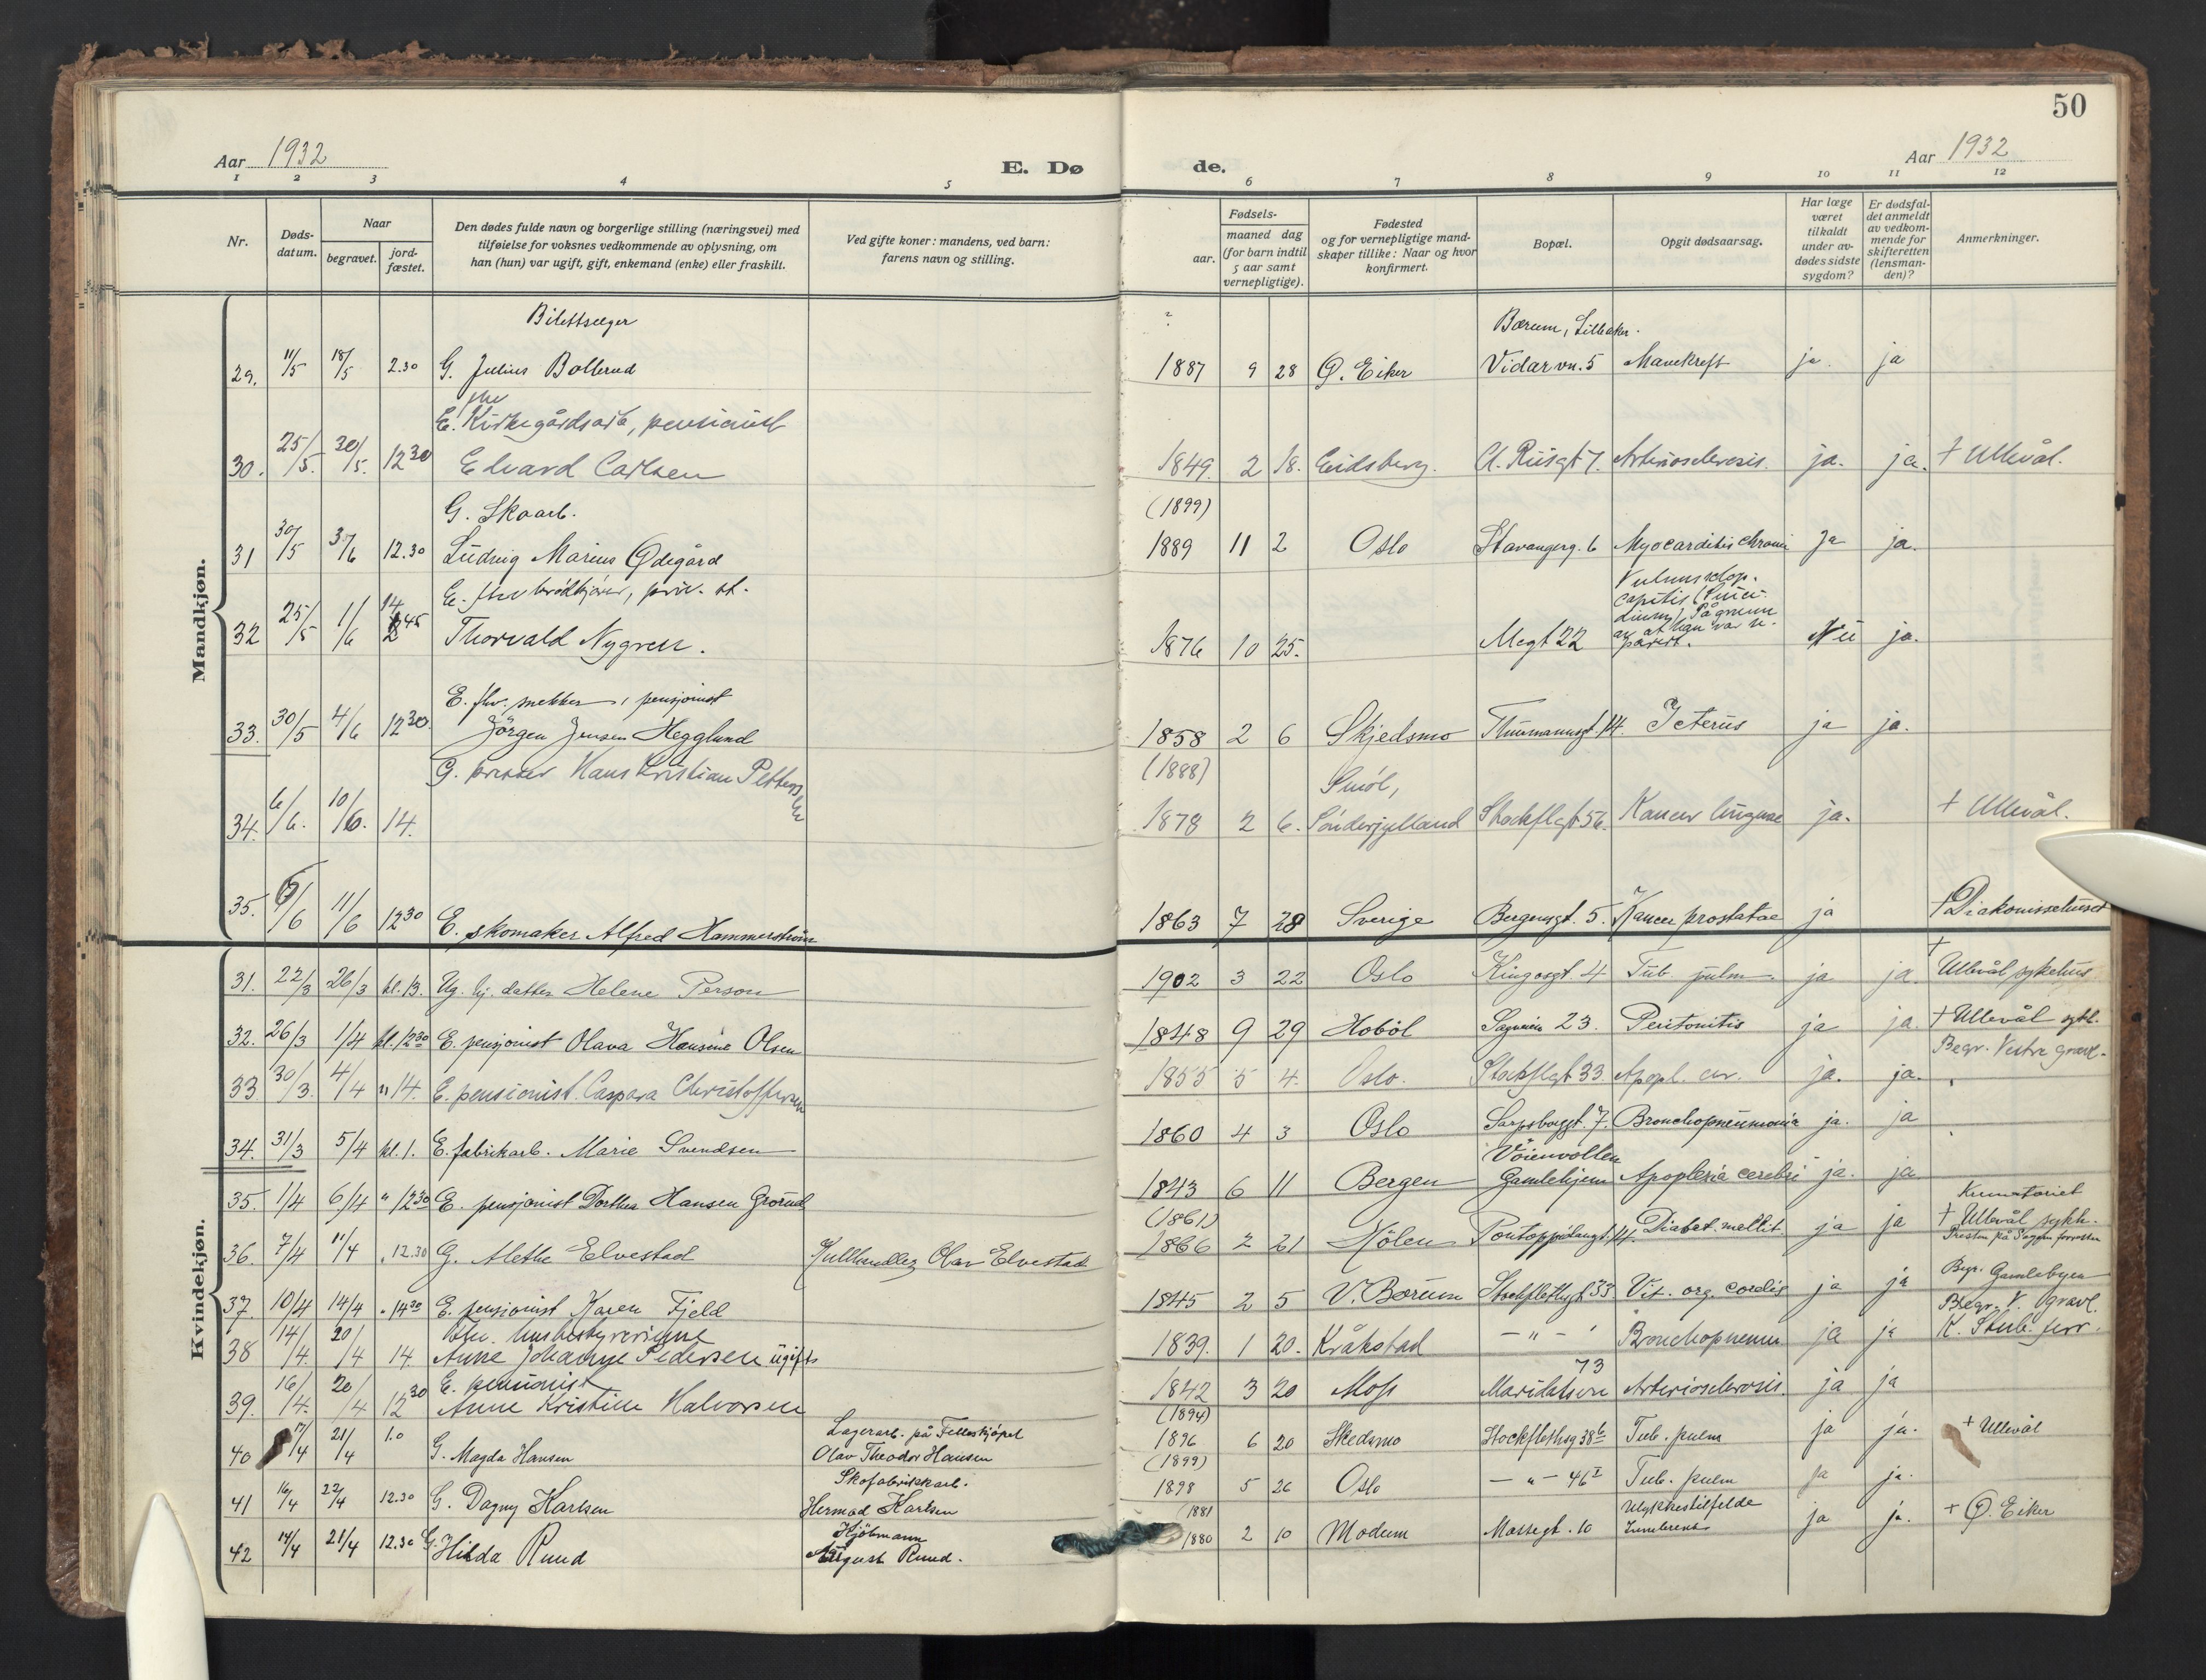 50
Aar 1932
E. Dø
de.
Aar 1932
1 2 3 4 5 6 7 8 9 10 11 12
Nr.
Døds-
datum.
Naar
begravet.
jord-
fæstet.
Den dødes fulde navn og borgerlige stilling (næringsvei) med
tilføielse for voksnes vedkommende av oplysning, om
han (hun) var ugift, gift, enkemand (enke) eller fraskilt.
Ved gifte koner: mandens, ved barn:
farens navn og stilling.
Fødsels-
aar.
maaned dag
(for barn indtil
5 aar samt
vernepligtige).
Fødested
og for vernepligtige mand-
skaper tillike: Naar og hvor
konfirmert.
Bopæl.
Opgit dødsaarsag.
Har læge
været
tilkaldt
under av-
dødes sidste
sygdom?
Er dødsfal-
det anmeldt
av vedkom-
mende for
skifteretten
(lensman-
den)?
Anmerkninger.
Mandkjøn.
Bilettsælger
Bærum, Lilleaker.
29. 11/5 18/5 2.30 G. Julius Bollerud 1887 9 28 Ø. Eiker Vidarvn. 5 Mavekreft ja. ja
fhv
E. Kirkegårdsarb, pensionist
30. 25/5. 30/5. 12 30 Edvard Carlsen 1849. 2 18. Eidsberg. A. Riisgt 7. Arteriosclerosis. ja. ja. + Ullevål.
G. Skoarb. (1899)
31 30/5 3/6 12.30 Ludvig Marius Ødegård 1889 11 2 Oslo Stavangerg. 6 Myocarditis chronic Ja ja.
E. fhv brödkjörer, priv. st.
Vulnus sclop.
capitis
På grunn
av at han var u-
32 25/5 1/6 14 45 Thorvald Nygren. 1876 10 25. Megt 22 Nei ja.
E. fhv. snekker, pensjonist
33. 30/5 4/6 12 30. Jörgen Jensen Hegglund 1858 2 6 Skjedsmo Thurmannsgt. 14. Icterus ja ja.
G. Hans Kristian Pettersen (1888) Smöl,
34. 6/6. 10/6. 14. 1878 2 6. Sönderjylland Stockflgt 56. Kancer linguae ja. + Ullevål.
35. 6/6 11/6 12 30 E. skomaker Alfred Hammerström 1863 7 28 Sverige Bergensgt. 5. Kancer prostatae ja + Diakonissehuset
Kvindekjøn.
31. 22/3 26/3 kl. 13. Ug. hj. datter Helene Person 1902 3 22 Oslo Kingosgt 4 Tub. pulm. ja ja. + Ullevål sykehus
32. 26/3 1/4 kl. 12 30 E. pensjonist Olava Hansine Olsen 1848 9 29 Hobøl Sagveien 23. Peritonitis ja ja. + Ullevål sykh.
Begr. Vestre gravl.
33 30/3. 4/4 " 14. E. pensionist Caspara Christoffersen 1855 5 4. Oslo. Stockflgt 33. Apopl. cer. ja. ja.
34. 31/3 5/4 kl. 1. E. fabrikarb. Marie Svendsen 1860 4 3 Oslo Sarpsborggt. 7. Bronchopneumonia ja. ja
Vöienvollen
35. 1/4 6/4 " 12 30 E. pensjonist Dorthea Hansen Grorud 1843 6 11 Bergen Gamlehjem Apoplexia cerebri ja. ja.
(1861) Krematoriet
36. 7/4 11/4 " 12.30 G. Alethe Elvestad Kullhandler Olav Elvestad 1866 2 21 Hölen Pontoppidansgt. 14. Diabet. mellit. ja ja + Ullevål sykh.
Presten på Sagene forrettet
37. 10/4 14/4 " 14 30 E. pensjonist Karen Fjeld 1845 2 5 V. Bærum Stockflethsgt 33 Vit. org. cordis ja ja Begr. Gamlebyen
Fhv. husbestyrerinne Begr. V. gravl.
38 14/4. 20/4 14. Anne Johanne Pedersen ugift 1839. 1 20. Kråkstad — " — Bronchopneum. ja ja K. Stub. forr.
E. pensionist 73
39. 16/4. 20/4 12 30 Anne Kristine Halvorsen 1842 3 20 Moss Maridalsvn Arteriosclerosis. ja ja
Lagerarb. på Felleskjöpet (1894)
40 17/4 21/4 1.0 G. Magda Hansen Olav Theodor Hansen 1896 6 20 Skedsmo Stockflethsg 38 b Tub. pulm ja ja. + Ullevål
Skofabrikkarb. (1899)
41 16/4 22/4 12.30 G. Dagny Karlsen Hermod Karlsen 1898 5 26 Oslo — " — 46 I Tub. pulm ja ja.
Kjöbmann (1881 Ulykkestilfelde
42 14/4 21/4 12.30 G. Hilda Ruud August Ruud. 1880 2 10 Modum Mossegt. 10 ja ja. + Ø. Eiker